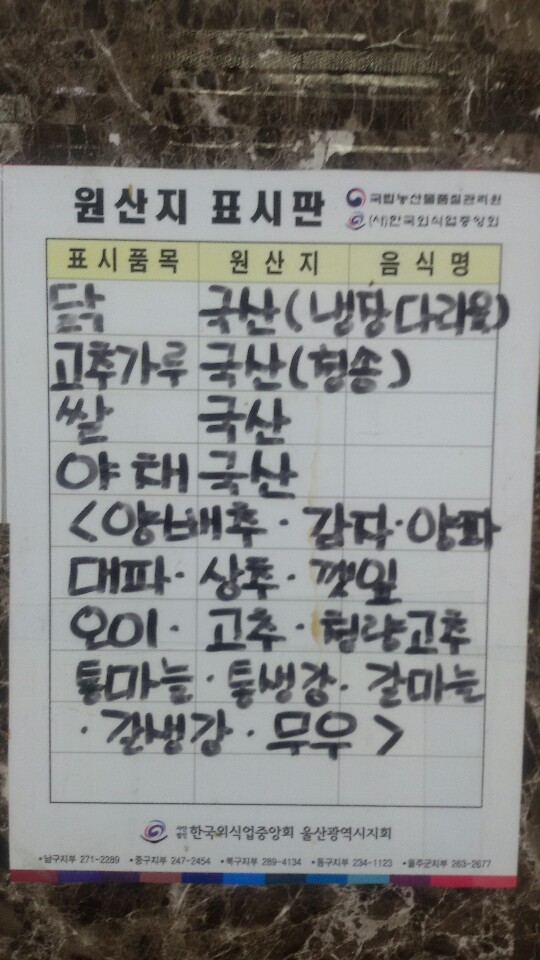 원산지 표시판
국립농산물품질관리원
(사)한국외식업중앙회
표시품목 원산지 음식명
닭 국산(냉장다리울)
고추가루 국산(청송)
쌀 국산
야채 국산
<양배추·감자·양파
대파·상추·깻잎
오이·고추·청량고추
통마늘·통생강·갈마늘
·갈생강·무우>
사단법인 한국외식업중앙회 울산광역시지회
•남구지부 271-2289 •중구지부 247-2454 •북구지부 289-4134 •동구지부 234-1123 •울주군지부 263-2677